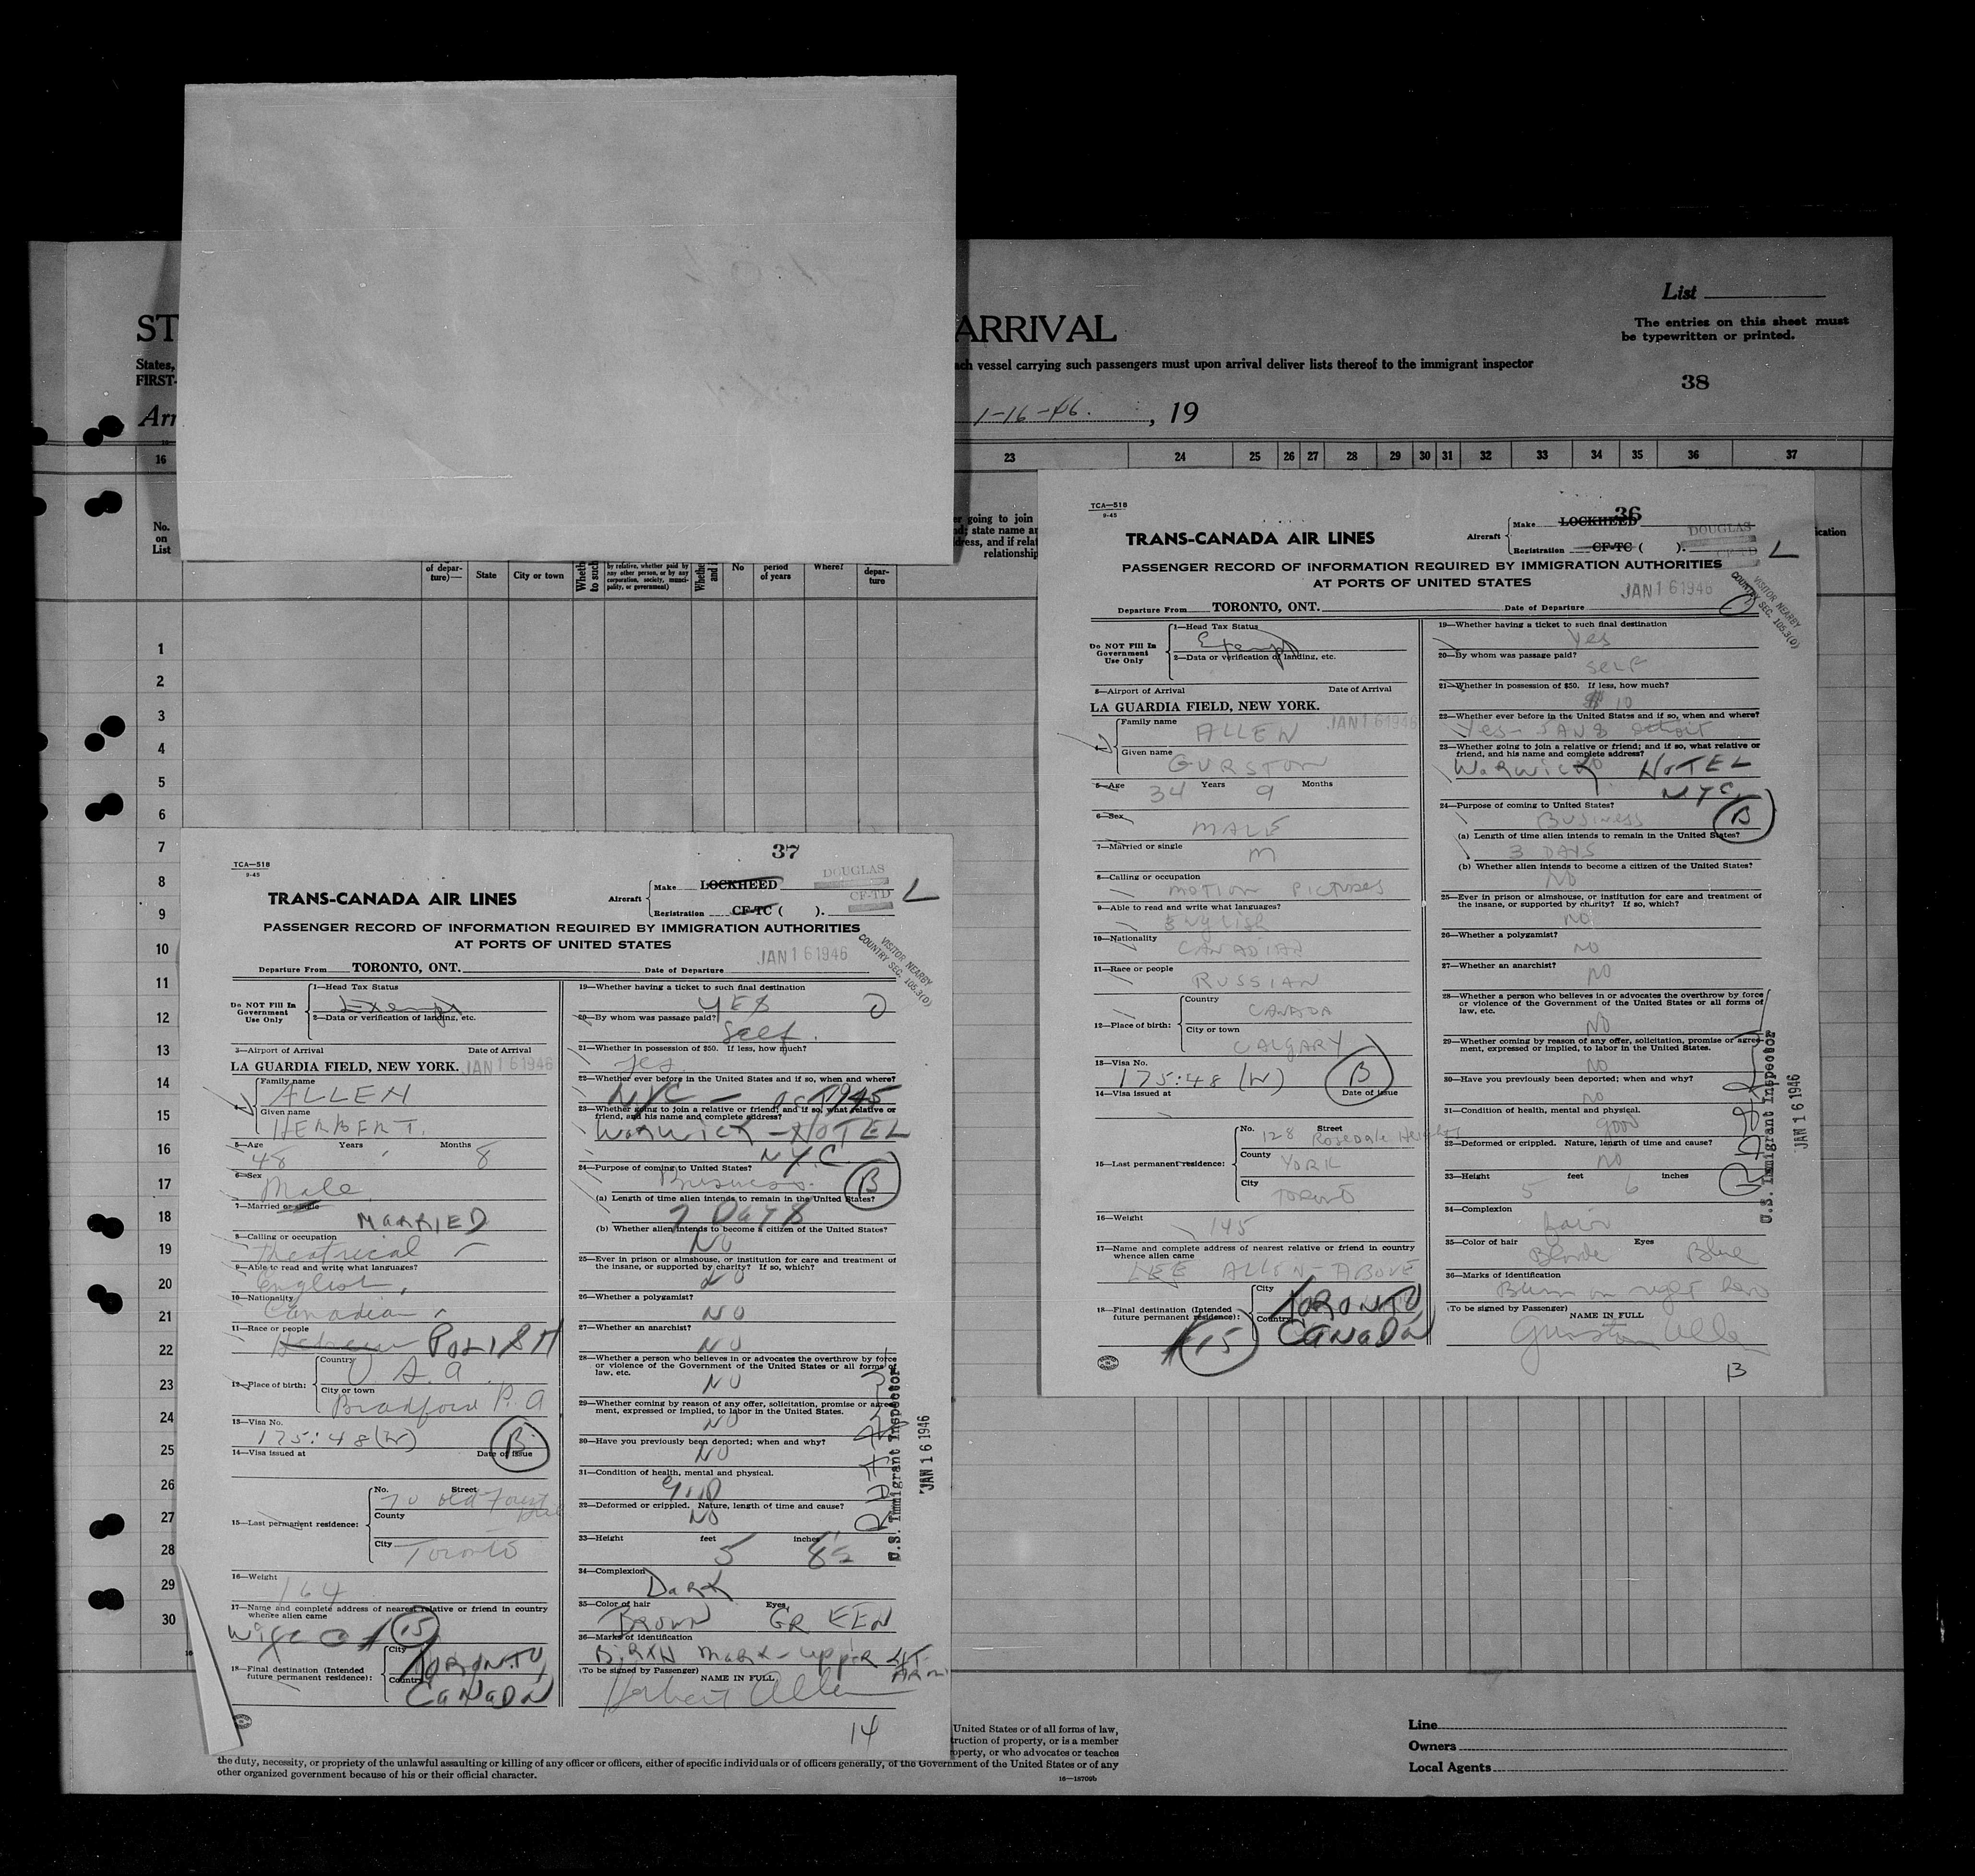 List
The entries on this sheet must
be typewritten or printed.
ST
ARRIVAL
States,
ach vessel carrying such passengers must upon arrival deliver lists thereof to the immigrant inspector
FIRST-
38
Arr
1-16-46. , 19
16 23 24 25 26 27 28 29 30 31 32 33 34 35 36 37
No.
on
List
er going to join
state name
and if relat
relationship
of depar-
ture)—
State
City or town
by relative, whether paid by
any other person, or by any
corporation, society, munici-
pality, or government)
No
period
of years
Where?
depar-
ture
1
2
3
4
5
6
7
8
9
10
11
12
13
14
15
16
17
18
19
20
21
22
23
24
25
26
27
28
29
30
37
TCA—518
9-45
TRANS-CANADA AIR LINES
Aircraft
Make LOCKHEED DOUGLAS
Registration CF-TC ( ). CF-TD
L
PASSENGER RECORD OF INFORMATION REQUIRED BY IMMIGRATION AUTHORITIES
AT PORTS OF UNITED STATES
JAN 16 1946
VISITOR NEARBY
COUNTRY SEC. 105.3(0)
Departure From TORONTO, ONT. Date of Departure
Do NOT Fill In
Government
Use Only
1—Head Tax Status
Exempt
2—Data or verification of landing, etc.
3—Airport of Arrival Date of Arrival
LA GUARDIA FIELD, NEW YORK. JAN 16 1946
Family name
ALLEN
Given name
HERBERT.
5—Age Years Months
48 8
6—Sex
Male
7—Married or single
MARRIED
8—Calling or occupation
Theatrical
9—Able to read and write what languages?
English
10—Nationality
Canadian
11—Race or people
Hebrew POLISH
12—Place of birth:
Country
U.S.A.
City or town
Bradford P.A
13—Visa No.
175:48(W) B
14—Visa issued at Date of issue
15—Last permanent residence:
No. Street
70 Old Forest
County
City
Toronto
16—Weight
164
17—Name and complete address of nearest relative or friend in country
whence alien came
Wife 15
18—Final destination (Intended
future permanent residence):
City
TORONTO,
Country
CANADA
19—Whether having a ticket to such final destination
YES
20—By whom was passage paid?
Self.
21—Whether in possession of $50. If less, how much?
Yes
22—Whether ever before in the United States and if so, when and where?
NYC - OCT 1945
23—Whether going to join a relative or friend; and if so, what relative or
friend, and his name and complete address?
WARWICK - HOTEL
N.Y.C.
24—Purpose of coming to United States?
Business. B
(a) Length of time alien intends to remain in the United States?
7 DAYS
(b) Whether alien intends to become a citizen of the United States?
NO
25—Ever in prison or almshouse, or institution for care and treatment of
the insane, or supported by charity? If so, which?
NO
26—Whether a polygamist?
NO
27—Whether an anarchist?
NO
28—Whether a person who believes in or advocates the overthrow by force
or violence of the Government of the United States or all forms of
law, etc.
NO
29—Whether coming by reason of any offer, solicitation, promise or agree-
ment, expressed or implied, to labor in the United States.
NO
30—Have you previously been deported; when and why?
NO
31—Condition of health, mental and physical.
good
32—Deformed or crippled. Nature, length of time and cause?
NO
33—Height feet inches
5 8½
34—Complexion
DARK
35—Color of hair Eyes
BROWN GREEN
36—Marks of identification
BIRTH MARK - UPPER LFT.
ARM
(To be signed by Passenger) NAME IN FULL
Herbert Allen
14
U.S. Immigrant Inspector
JAN 16 1946
36
TCA—518
9-45
TRANS-CANADA AIR LINES
Aircraft
Make LOCKHEED DOUGLAS
Registration CF-TC ( ). CF-TD
L
PASSENGER RECORD OF INFORMATION REQUIRED BY IMMIGRATION AUTHORITIES
AT PORTS OF UNITED STATES
JAN 16 1946
VISITOR NEARBY
COUNTRY SEC. 105.3(0)
Departure From TORONTO, ONT. Date of Departure
Do NOT Fill In
Government
Use Only
1—Head Tax Status
Exempt
2—Data or verification of landing, etc.
3—Airport of Arrival Date of Arrival
LA GUARDIA FIELD, NEW YORK. JAN 16 1946
Family name
ALLEN
Given name
GURSTON
5—Age Years Months
34 9
6—Sex
MALE
7—Married or single
M
8—Calling or occupation
MOTION PICTURES
9—Able to read and write what languages?
English
10—Nationality
CANADIAN
11—Race or people
RUSSIAN
12—Place of birth:
Country
CANADA
City or town
CALGARY
13—Visa No.
175:48 (W) B
14—Visa issued at Date of issue
15—Last permanent residence:
No. Street
128 Rosedale Heights
County
YORK
City
TORONTO
16—Weight
145
17—Name and complete address of nearest relative or friend in country
whence alien came
LEE ALLEN - ABOVE
18—Final destination (Intended
future permanent residence):
City
TORONTO,
Country
CANADA
15
19—Whether having a ticket to such final destination
Yes
20—By whom was passage paid?
SELF
21—Whether in possession of $50. If less, how much?
$ 10
22—Whether ever before in the United States and if so, when and where?
Yes - JAN 8 Detroit
23—Whether going to join a relative or friend; and if so, what relative or
friend, and his name and complete address?
WARWICK HOTEL
NYC.
24—Purpose of coming to United States?
Business B
(a) Length of time alien intends to remain in the United States?
3 DAYS
(b) Whether alien intends to become a citizen of the United States?
NO
25—Ever in prison or almshouse, or institution for care and treatment of
the insane, or supported by charity? If so, which?
NO
26—Whether a polygamist?
NO
27—Whether an anarchist?
NO
28—Whether a person who believes in or advocates the overthrow by force
or violence of the Government of the United States or all forms of
law, etc.
NO
29—Whether coming by reason of any offer, solicitation, promise or agree-
ment, expressed or implied, to labor in the United States.
NO
30—Have you previously been deported; when and why?
NO
31—Condition of health, mental and physical.
good
32—Deformed or crippled. Nature, length of time and cause?
NO
33—Height feet inches
5 6
34—Complexion
Fair
35—Color of hair Eyes
Blonde Blue
36—Marks of identification
Burn on right
(To be signed by Passenger) NAME IN FULL
Gurston Allen
13
U.S. Immigrant Inspector
JAN 16 1946
United States or of all forms of law,
truction of property, or is a member
operty, or who advocates or teaches
the duty, necessity, or propriety of the unlawful assaulting or killing of any officer or officers, either of specific individuals or of officers generally, of the Government of the United States or of any
other organized government because of his or their official character.
16—18708b
Line
Owners
Local Agents